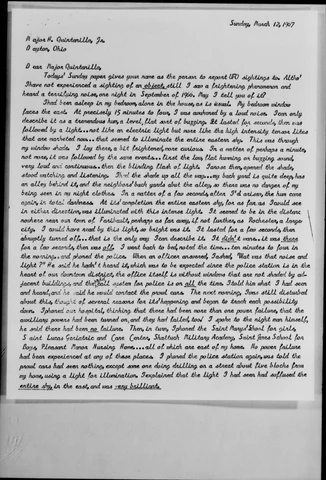 Sunday, March 12, 1967
Major H. Quintanilla, Jr.
Dayton, Ohio
Dear Major Quintanilla,
Todays' Sunday paper gives your name as the person to report UFO sightings to. Altho'
I have not experienced a sighting of an object, still I saw a frightening phenomenon and
heard a terrifying noise, one night in September of 1966. May I tell you of it?
I had been asleep in my bedroom, alone in the house, as is usual. My bedroom window
faces the east. At precisely 15 minutes to four, I was awakened by a loud noise. I can only
describe it as a tremendous hum, a level, flat sort of buzzing. It lasted for seconds, then was
followed by a light...not like an electric light but more like the high intensity
that one nowhere near...that seemed to illuminate the entire eastern sky. This was through
my window shade. I lay there, a bit frightened, more curious. In a matter of perhaps a minute,
not more, it was followed by the same events...first the low, flat humming or buzzing sound
very loud and continuous..then the blinding flash of light. I arose then, opened the shade,
stood watching and listening. Had the shade up all the way...my back yard is quite deep, has
an alley behind it, and the neighbors' back yards abut the alley, so there was no danger of my
being seen in my night clothes. In a matter of a few seconds, after I'd arisen, the hum came
again, in total darkness. At its' completion the entire eastern sky, for as far as I could see
in either direction, was illuminated with this intense light. It seemed to be in the distance
nowhere near our town of Faribault, perhaps as far away, if not farther, as Rochester, a large
city. I could have read by this light, so bright was it. It lasted for a few seconds, then
abruptly turned off...that is the only way I can describe it. It didn't wane..it was there
for a few seconds, then was off. I went back to bed, noted the time...ten minutes to four in
the morning..and phoned the police. When an officer answered, I asked, "What was that noise and
light?" He said he hadn't heard it, which was to be expected since the police station is in the
heart of our downtown district, the office itself is without windows that are not shaded by ad-
jacent buildings, and the call system for police is on all the time. I told him what I had seen
and heard, and he said he would contact the prowl cars. The next morning, I was still disturbed
about this, thought of several reasons for its' happening and began to track each possibility
down. I phoned our hospital, thinking that there had been more than one power failure, that the
auxiliary powers had been turned on, and they had failed, too. I spoke to the night man himself,
he said there had been no failure. Then, in turn, I phoned the Saint Marys' School for girls,
Saint Lucas Geriatric and Care Center, Shattuck Military Academy, Saint James School for
Boys, Pleasant Manor Nursing Home....all of which are east of my home. No power failure
had been experienced at any of these places. I phoned the police station again, was told the
prowl cars had seen nothing, except some one doing drilling on a street about five blocks from
my home, using a light for illumination. I explained that the light I had seen had suffused the
entire sky, in the east, and was very brilliant.